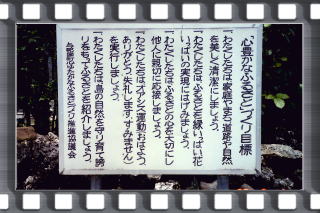 「心豊かなふるさとづくり目標」
一、わたしたちは家庭やまち道路や自然
を美しく清潔にしましょう。
一、わたしたちはふるさとを緑いっぱい花
いっぱいの実現にはげみましょう。
一、わたしたちはふるさとの心を大切にし
他人に親切に応接しましょう。
一、わたしたちはオアシス運動(おはよう
ありがとう失礼しますすみません)
を実行しましょう。
一、わたしたちは島の自然を守り育て誇
りをもってふるさとを紹介しましょう。